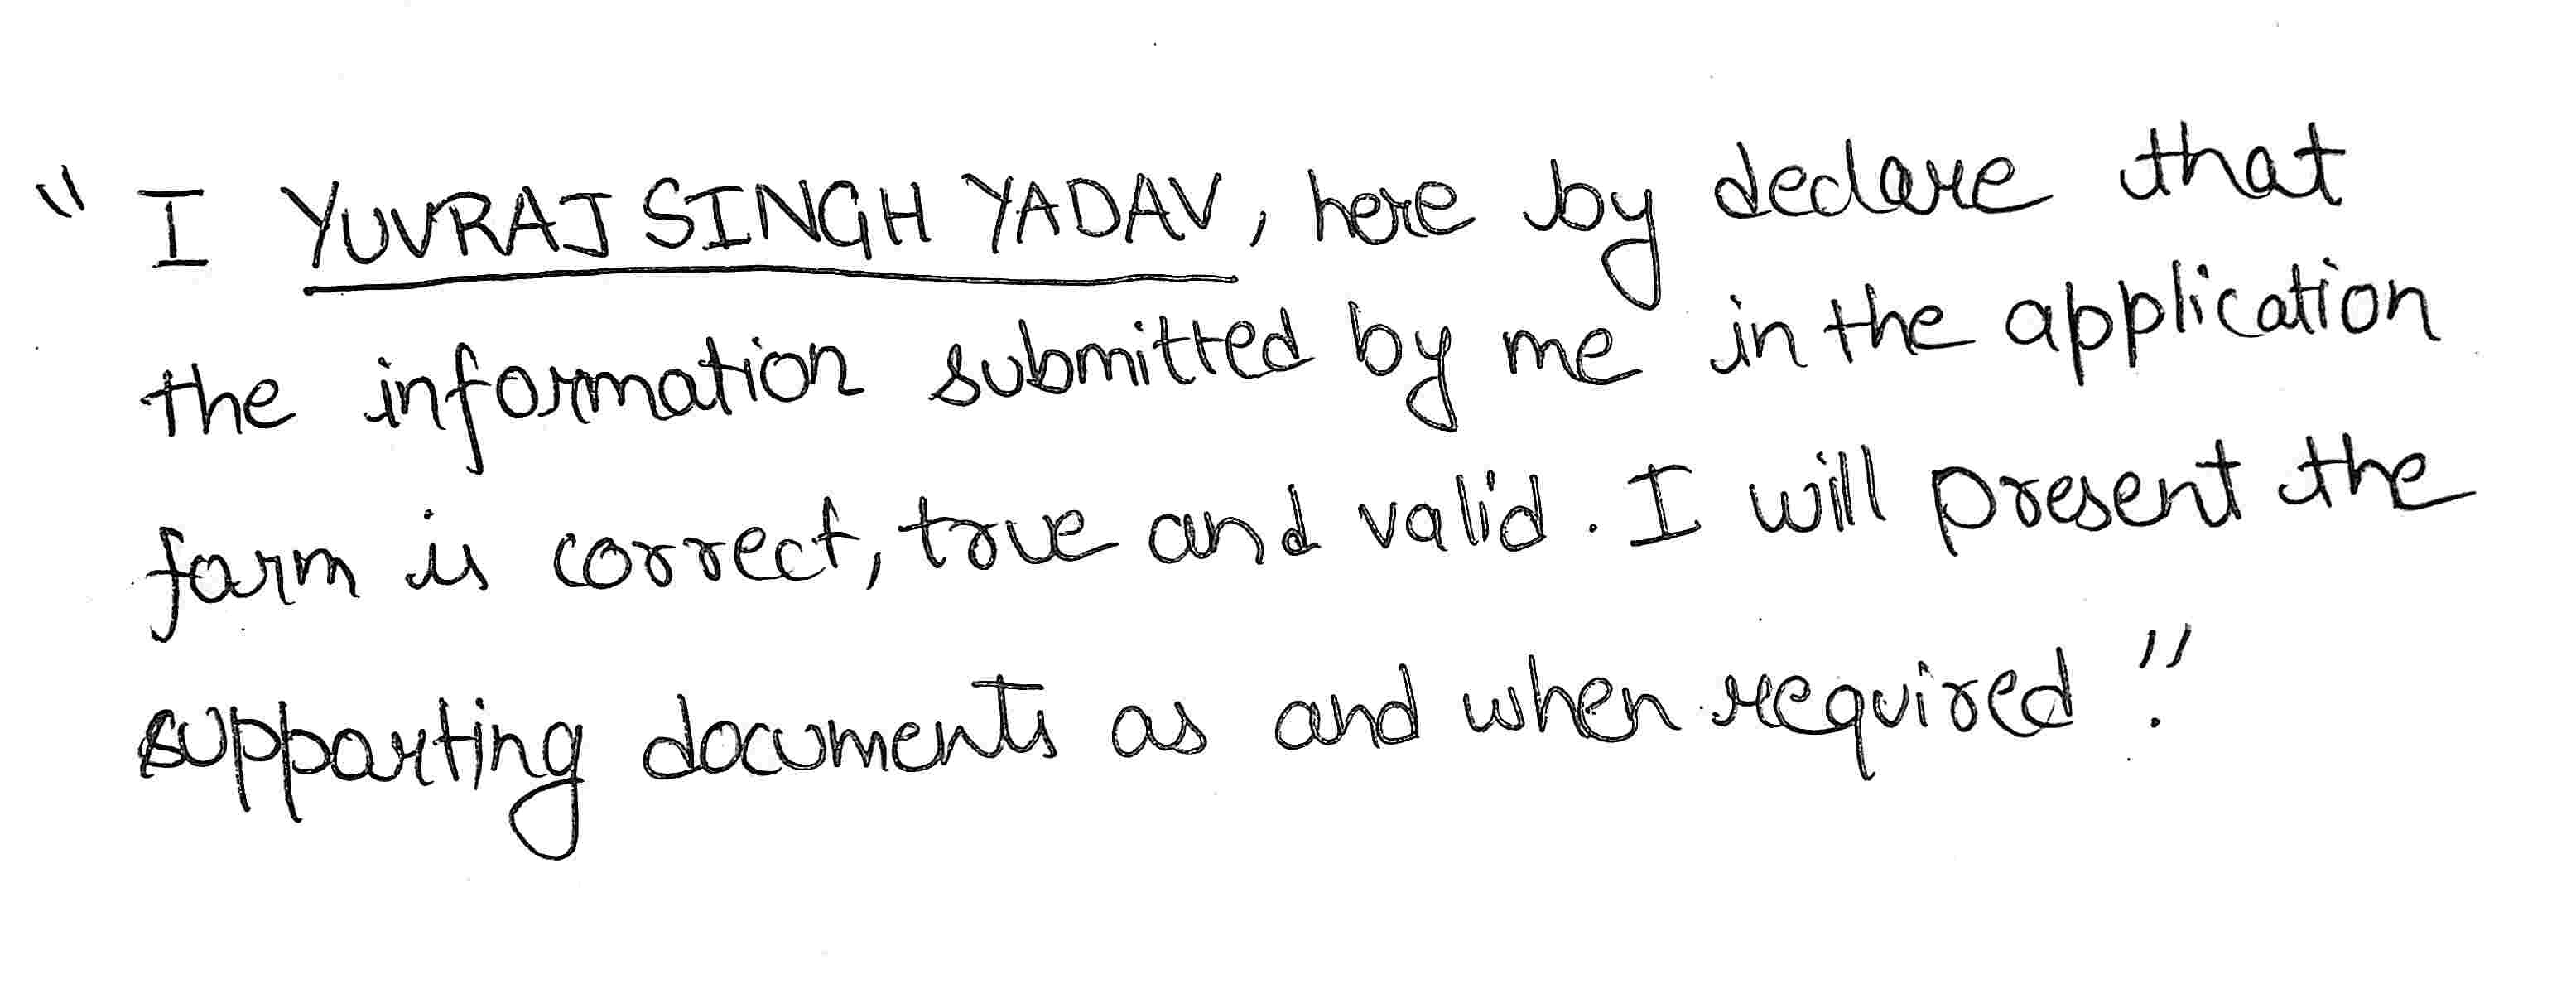 "I YUVRAJ SINGH YADAV, here by declare that
the information submitted by me in the application
form is correct, true and valid. I will present the
supporting documents as and when required."